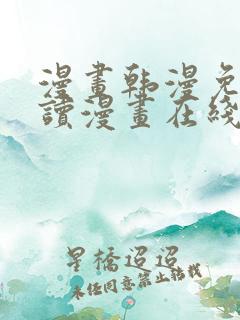 漫畫韩漫免
讀漫畫在綫
星橋迢迢
未经同意禁止转载